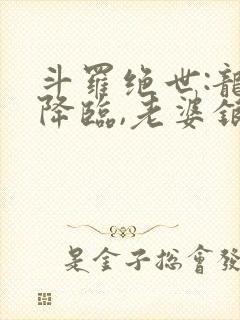 斗羅绝世:龍
降臨,老婆銀
是金子總會發